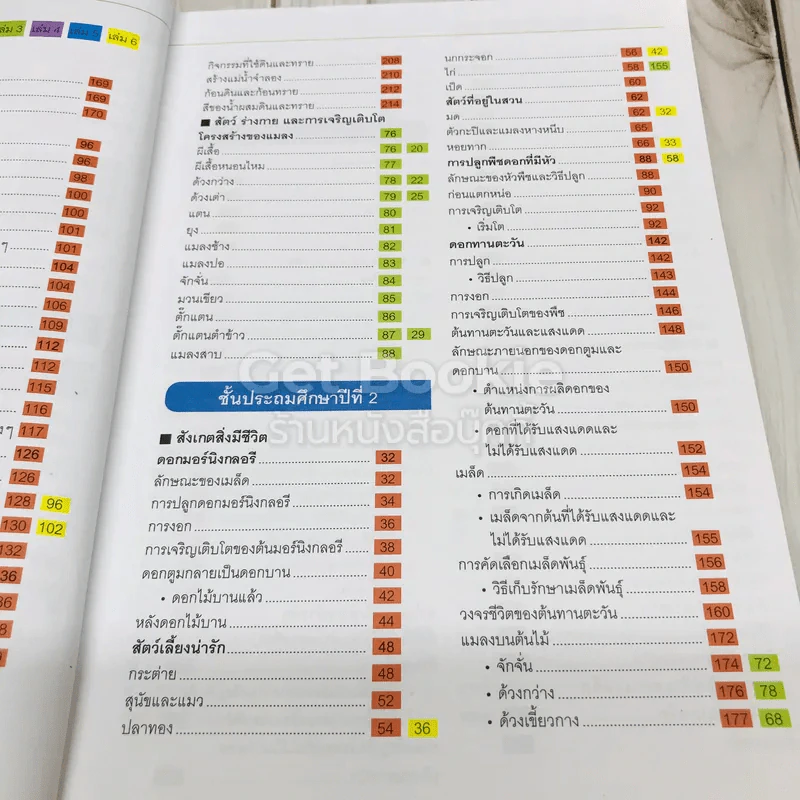 เล่ม 3 เล่ม 4 เล่ม 5 เล่ม 6
169
169
170
96
96
98
100
100
101
101
104
104
106
109
112
112
115
116
117
126
126
128 96
130 102
132
136
กิจกรรมที่ใช้ดินและทราย 208
สร้างแม่น้ำจำลอง 210
ก้อนดินและก้อนทราย 212
สีของน้ำผสมดินและทราย 214
■ สัตว์ ร่างกาย และการเจริญเติบโต
โครงสร้างของแมลง 76
ผีเสื้อ 76 20
ผีเสื้อหนอนไหม 77
ด้วงกว่าง 78 22
ด้วงเต่า 79 25
แตน 80
ยุง 81
แมลงช้าง 82
แมลงปอ 83
จักจั่น 84
มวนเขียว 85
ตั๊กแตน 86
ตั๊กแตนตำข้าว 87 29
แมลงสาบ 88
ชั้นประถมศึกษาปีที่ 2
■ สังเกตสิ่งมีชีวิต
ดอกมอร์นิงกลอรี 32
ลักษณะของเมล็ด 32
การปลูกดอกมอร์นิงกลอรี 34
การงอก 36
การเจริญเติบโตของต้นมอร์นิงกลอรี 38
ดอกตูมกลายเป็นดอกบาน 40
• ดอกไม้บานแล้ว 42
หลังดอกไม้บาน 44
สัตว์เลี้ยงน่ารัก 48
กระต่าย 48
สุนัขและแมว 52
ปลาทอง 54 36
นกกระจอก 56 42
ไก่ 58 155
เป็ด 60
สัตว์ที่อยู่ในสวน 62
มด 62 32
ตัวกะปิและแมลงหางหนีบ 65
หอยทาก 66 33
การปลูกพืชดอกที่มีหัว 88 58
ลักษณะของหัวพืชและวิธีปลูก 88
ก่อนแตกหน่อ 90
การเจริญเติบโต 92
• เริ่มโต 92
ดอกทานตะวัน 142
การปลูก 142
• วิธีปลูก 143
การงอก 144
การเจริญเติบโตของพืช 146
ต้นทานตะวันและแสงแดด 148
ลักษณะภายนอกของดอกตูมและ
ดอกบาน 150
• ตำแหน่งการผลิดอกของ
ต้นทานตะวัน 150
• ดอกที่ได้รับแสงแดดและ
ไม่ได้รับแสงแดด 152
เมล็ด 154
• การเกิดเมล็ด 154
• เมล็ดจากต้นที่ได้รับแสงแดดและ
ไม่ได้รับแสงแดด 155
การคัดเลือกเมล็ดพันธุ์ 156
• วิธีเก็บรักษาเมล็ดพันธุ์ 158
วงจรชีวิตของต้นทานตะวัน 160
แมลงบนต้นไม้ 172
• จักจั่น 174 72
• ด้วงกว่าง 176 78
• ด้วงเขี้ยวกาง 177 68
Get Bookie
ร้านหนังสือบุ๊คกี้